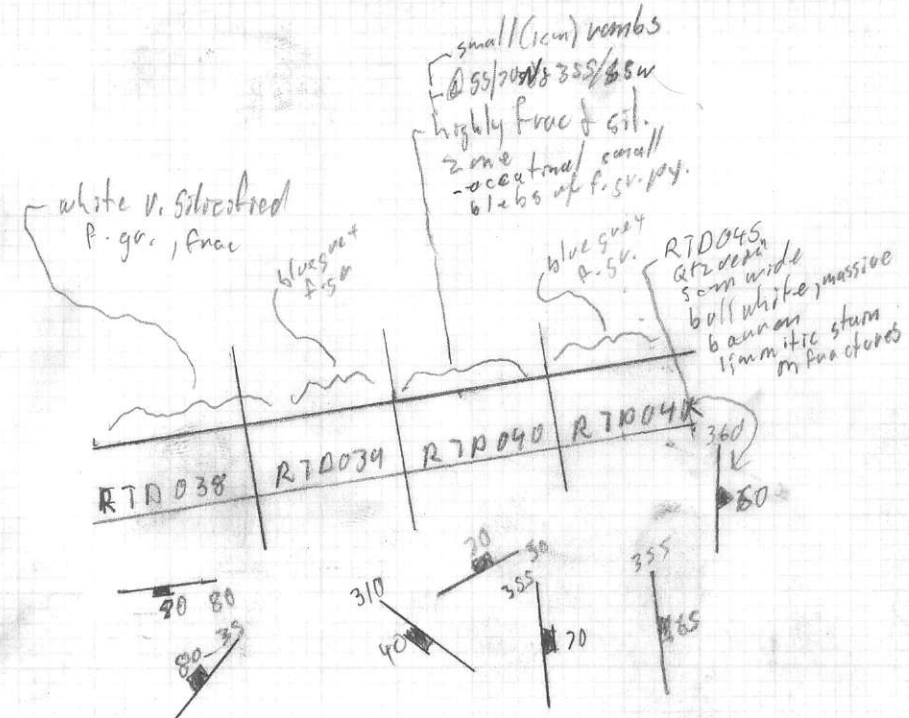 small (1cm) rombs
@ 55/70N & 355/85W
highly frac & sil.
zone
- occational small
blebs of f.gr. py.
white v. Silicified
f.gr., frac
blue grey
f.gr
blue grey
f.gr.
RTD045
Qtz vein
5cm wide
bull white, massive
barren
limonitic stain
on fractures
RTD038
RTD039
RTD040
RTD041
360
80
80 80
80 35
310
40
70
355
70
355
85